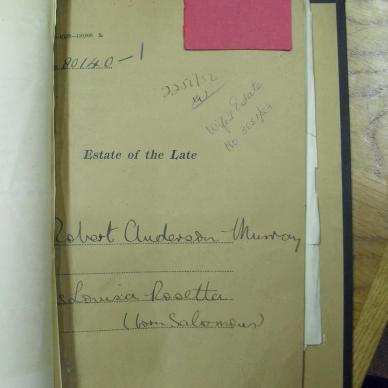 80140-1
2251/52
Wife's Estate
No 3051/53
Estate of the Late
Robert Anderson Murray
Louisa Rosetta
(born Salomons)